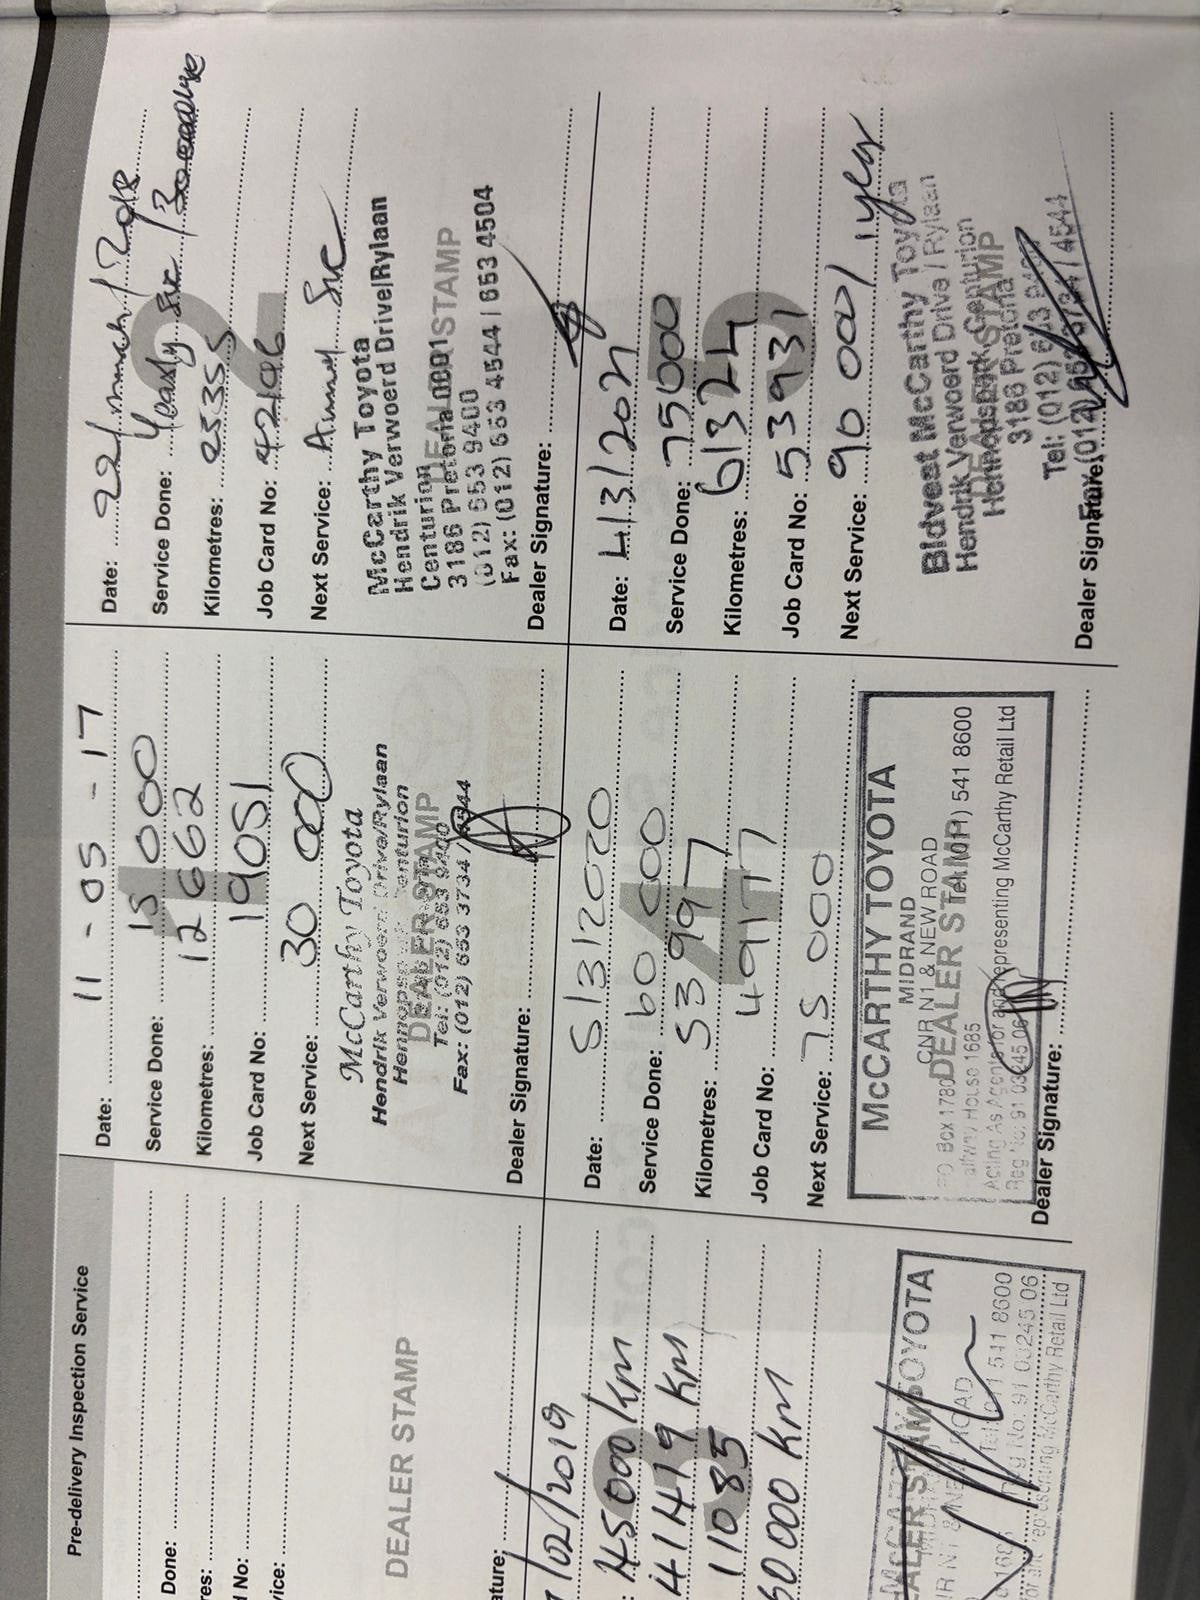 Pre-delivery Inspection Service
Done:
res:
No:
ice:
DEALER STAMP
ature:
Date: 11 - 05 - 17
1
Service Done: 15 000
Kilometres: 12662
Job Card No: 19051
Next Service: 30 000
McCarthy Toyota
Hendrik Verwoerd Drive/Rylaan
DEALER STAMP
Tel: (012) 653 9400
Fax: (012) 653 3734 / 4544
Dealer Signature:
Date: 22/march/2018
2
Service Done: Yearly Svc /
Kilometres: 25355
Job Card No: 42196
Next Service: Annual Svc
McCarthy Toyota
Hendrik Verwoerd Drive/Rylaan
Centurion
DEALER STAMP
3186 Pretoria 0001
(012) 653 9400
Fax: (012) 653 4544 / 653 4504
Dealer Signature:
/02/2019
3
: 45000 km
41419 km
11085
60000 km
DEALER STAMP
TOYOTA
511 8600
g No: 91 03245 06
representing McCarthy Retail Ltd
Date: 5/3/2020
4
Service Done: 60 000
Kilometres: 53997
Job Card No: 49177
Next Service: 75 000
McCARTHY TOYOTA
MIDRAND
CNR N1 & NEW ROAD
DEALER STAMP
Box 1780
Tel: (011) 541 8600
House 1685
Acting As Agents for and representing McCarthy Retail Ltd
Reg No: 91 03245 06
Dealer Signature:
Date: 4/3/2021
5
Service Done: 75000
Kilometres: 61324
Job Card No: 53931
Next Service: 90 000/1year
Bidvest McCarthy Toyota
Hendrik Verwoerd Drive / Rylaan
Hennopspark, Centurion
DEALER STAMP
3186 Pretoria
Tel: (012) 653
Dealer Signature: